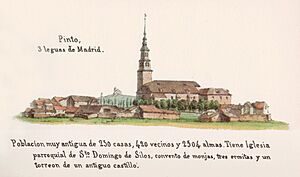 Pinto,
3 leguas de Madrid.
Poblacion muy antigua de 230 casas, 420 vecinos y 2304 almas. Tiene Iglesia
parroquial de Sto Domingo de Silos, convento de monjas, tres ermitas y un
torreon de un antiguo castillo.